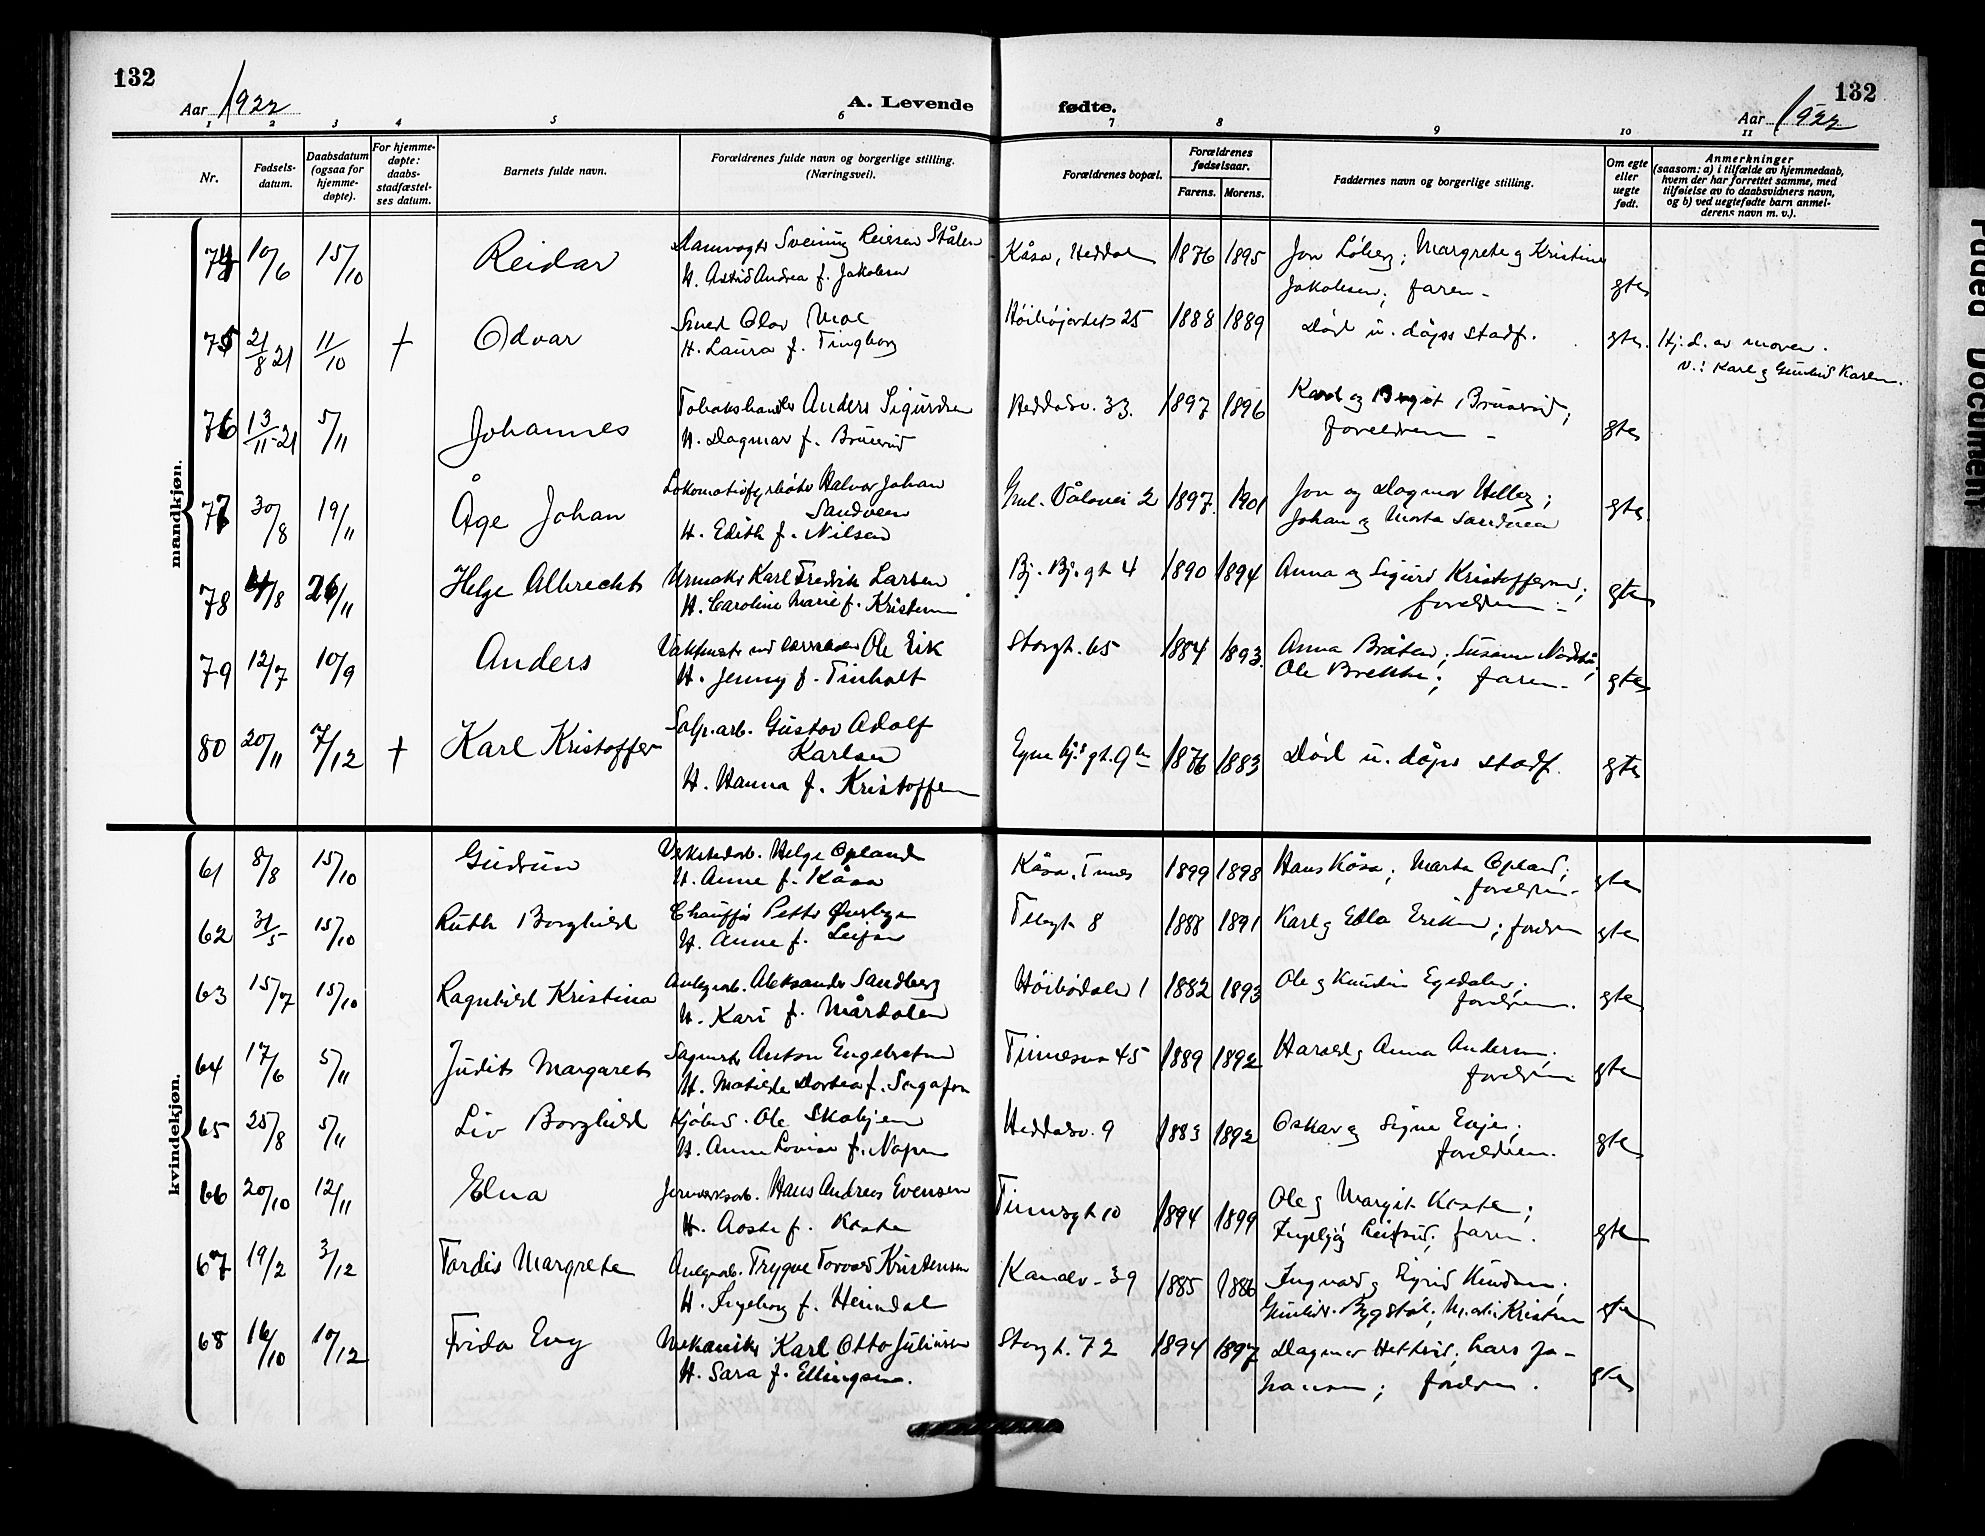 132
132
Aar 1922
A. Levende fødte.
Aar 1922
1 2 3 4 5 6 7 8 9 10 11
Nr.
Fødsels-
datum.
Daabsdatum
(ogsaa for
hjemme-
døpte).
For hjemme-
døpte:
daabs-
stadfæstel-
ses datum.
Barnets fulde navn.
Forældrenes fulde navn og borgerlige stilling.
(Næringsvei).
Forældrenes bopæl.
Forældrenes
fødselsaar.
Farens. Morens.
Faddernes navn og borgerlige stilling.
Om egte
eller
uegte
født.
Anmerkninger
(saasom: a) i tilfælde av hjemmedaab,
hvem der har forrettet samme, med
tilføielse av to daabsvidners navn,
og b) ved uegtefødte barn anmel-
derens navn m. v.).
mandkjøn.
74 10/6 15/10 Reidar Damvogter Sveinung Reiersen Stålen Kåsa, Heddal 1876 1895 Jon Løberg; Margrete og Kristine
H. Astrid Andrea f. Jakobsen Jakobsen; faren - gte
75 21/8 21 11/10 + Odvar Smed Olav Moe 1888 1889 Død u. dåps stadf. gte. Hj. d. av moren.
H. Laura f. Tingborg v.: Karl og Gunhild Karlsen.
76 13/11-21 5/11 Johannes Tobakshandler Anders Sigurdsen Heddalsv. 33. 1897 1896 Karl og Bergit Bruserud;
H. Dagmar f. Bruserud foreldrene - gte
77 30/8 19/11 Åge Johan Lokomotivfyrbøter Halvor Johan Sandven Gml. Vålevei 2 1897 1901 Jon og Dagmar Helberg;
H. Edith f. Nilsen Johan og Marta Sandven gte.
78 4/8 26/11 Helge Albrecht Urmaker Karl Fredrik Larsen Bj. Bj. gt 4 1890 1894 Anna og Sigurd Kristoffersen;
H. Caroline Marie f. Kristensen foreldrene - gte
79 12/7 10/9 Anders Ole Eik Storgt. 65 1884 1893. Anna Bråten; Susanne
H. Jenny f. Tinholt Ole Brekke; faren - gte
80 20/11 7/12 + Karl Kristoffer Salp.arb. Gustav Adolf Karlsen 1876 1883 Død u. dåps stadf. gte
H. Hanna f. Kristoffersen
kvindekjøn.
61 8/8 15/10 Gudrun Verkstedarb. Helge Opland Kåsa, Tinnes 1899 1898 Hans Kåsa; Marta Opland;
H. Anne f. Kåsa foreldrene - gte
62 31/5 15/10 Ruth Borghild Chauffør Petter Øverbye Telegt 8 1888 1891 Karl og Edla Eriksen; foreldrene gte
H. Anne f.
63 15/7 15/10 Ragnhild Kristina Anlegsarb. Aleksander Sandberg Høibødalen 1 1882 1893 Ole og Egedalen;
H. Kari f. Mårdalen foreldrene. gte
64 17/6 5/11 Judit Margaret Sagmester Anton Engebretsen Tinnesvn 45 1889 1892 Harald og Anna Andersen;
H. Matilde Dortea f. foreldrene gte
65 25/8 5/11 Liv Borghild Kjøbmd. Ole Skobjen Heddalsv. 9 1883 1892 Oskar og Signe Evje;
H. Anne Lovise f. foreldrene. gte
66 20/10 12/11 Elna Jernverksarb. Hans Andreas Evensen Tinnesgt 10 1894 1899 Ole og Margit Kaste;
H. Aaste f. Kaste Ingebjørg Leifsrud; faren. gte
67 19/2 3/12 Tordis Margrete Anlegsarb. Trygve Torvald Kristensen Kanalv. 39 1885 1886 Ingvald og Sigrid Knudsen;
H. Ingeborg f. Heimdal Gunhild Bygstøl; Kristensen gte
68 16/10 10/12 Frida Evy Mekaniker Karl Otto Juliusen Storgt. 72 1894 1897 Dagmar Lars Jo-
H. Sara f. Ellingsen. hansen; foreldrene. gte
Faded Document